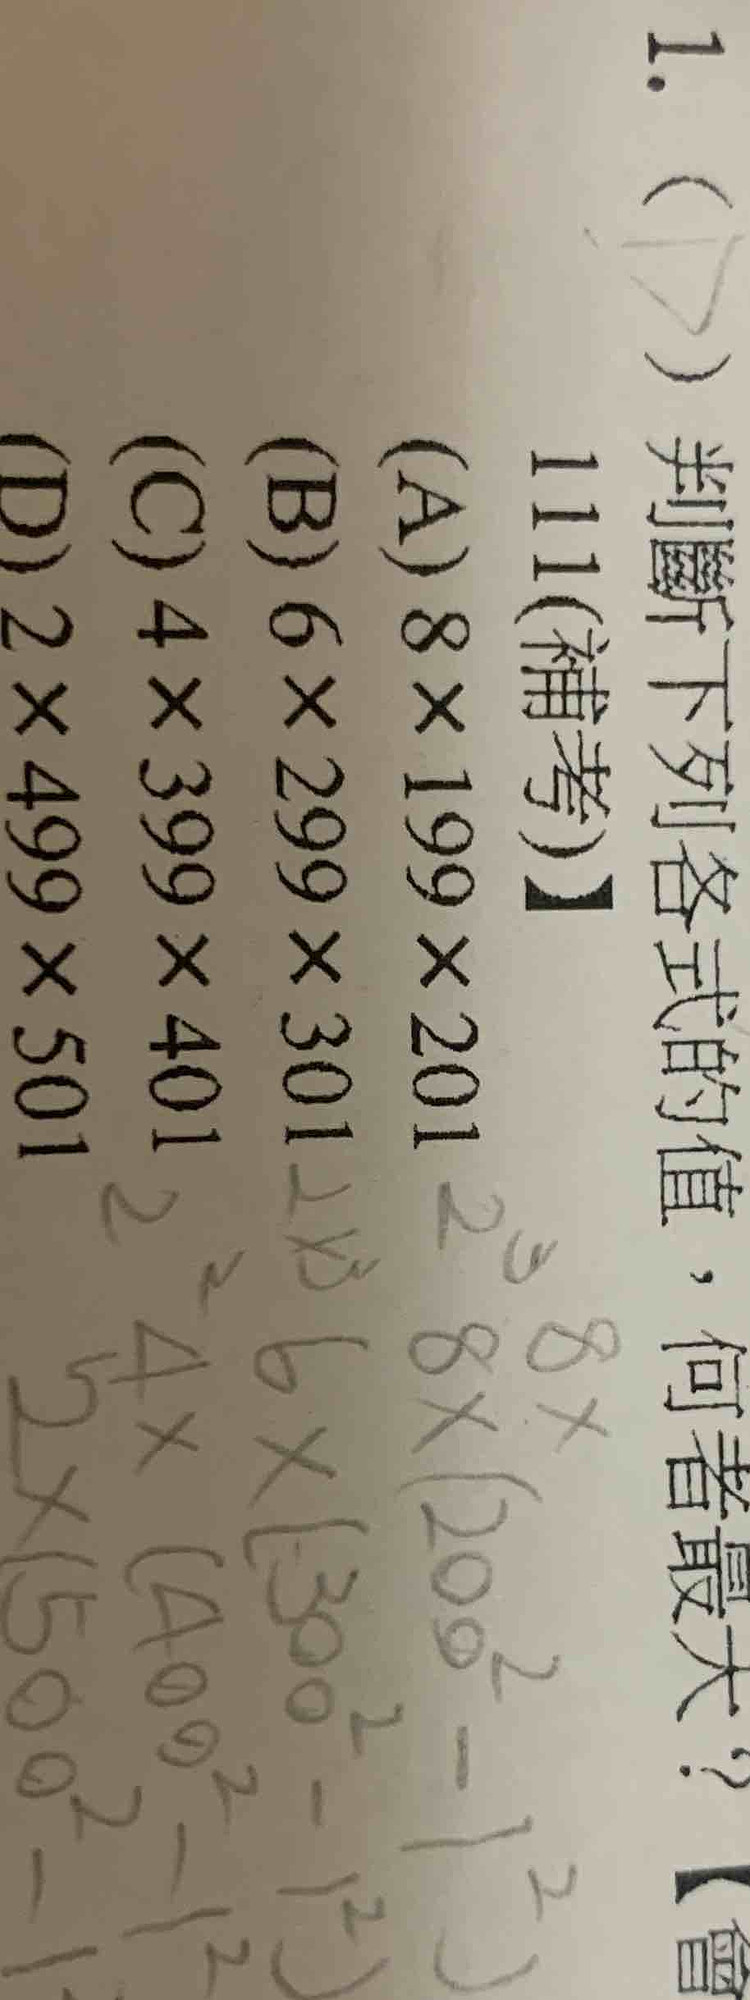 1. ( D ) 判斷下列各式的值，何者最大？【會
111(補考)】
8×
(A) 8×199×201 2³ 8×(200²-1²)
(B) 6×299×301 2×3 6×(300²-1²)
(C) 4×399×401 2² 4×(400²-1²
(D) 2×499×501 2×(500²-1